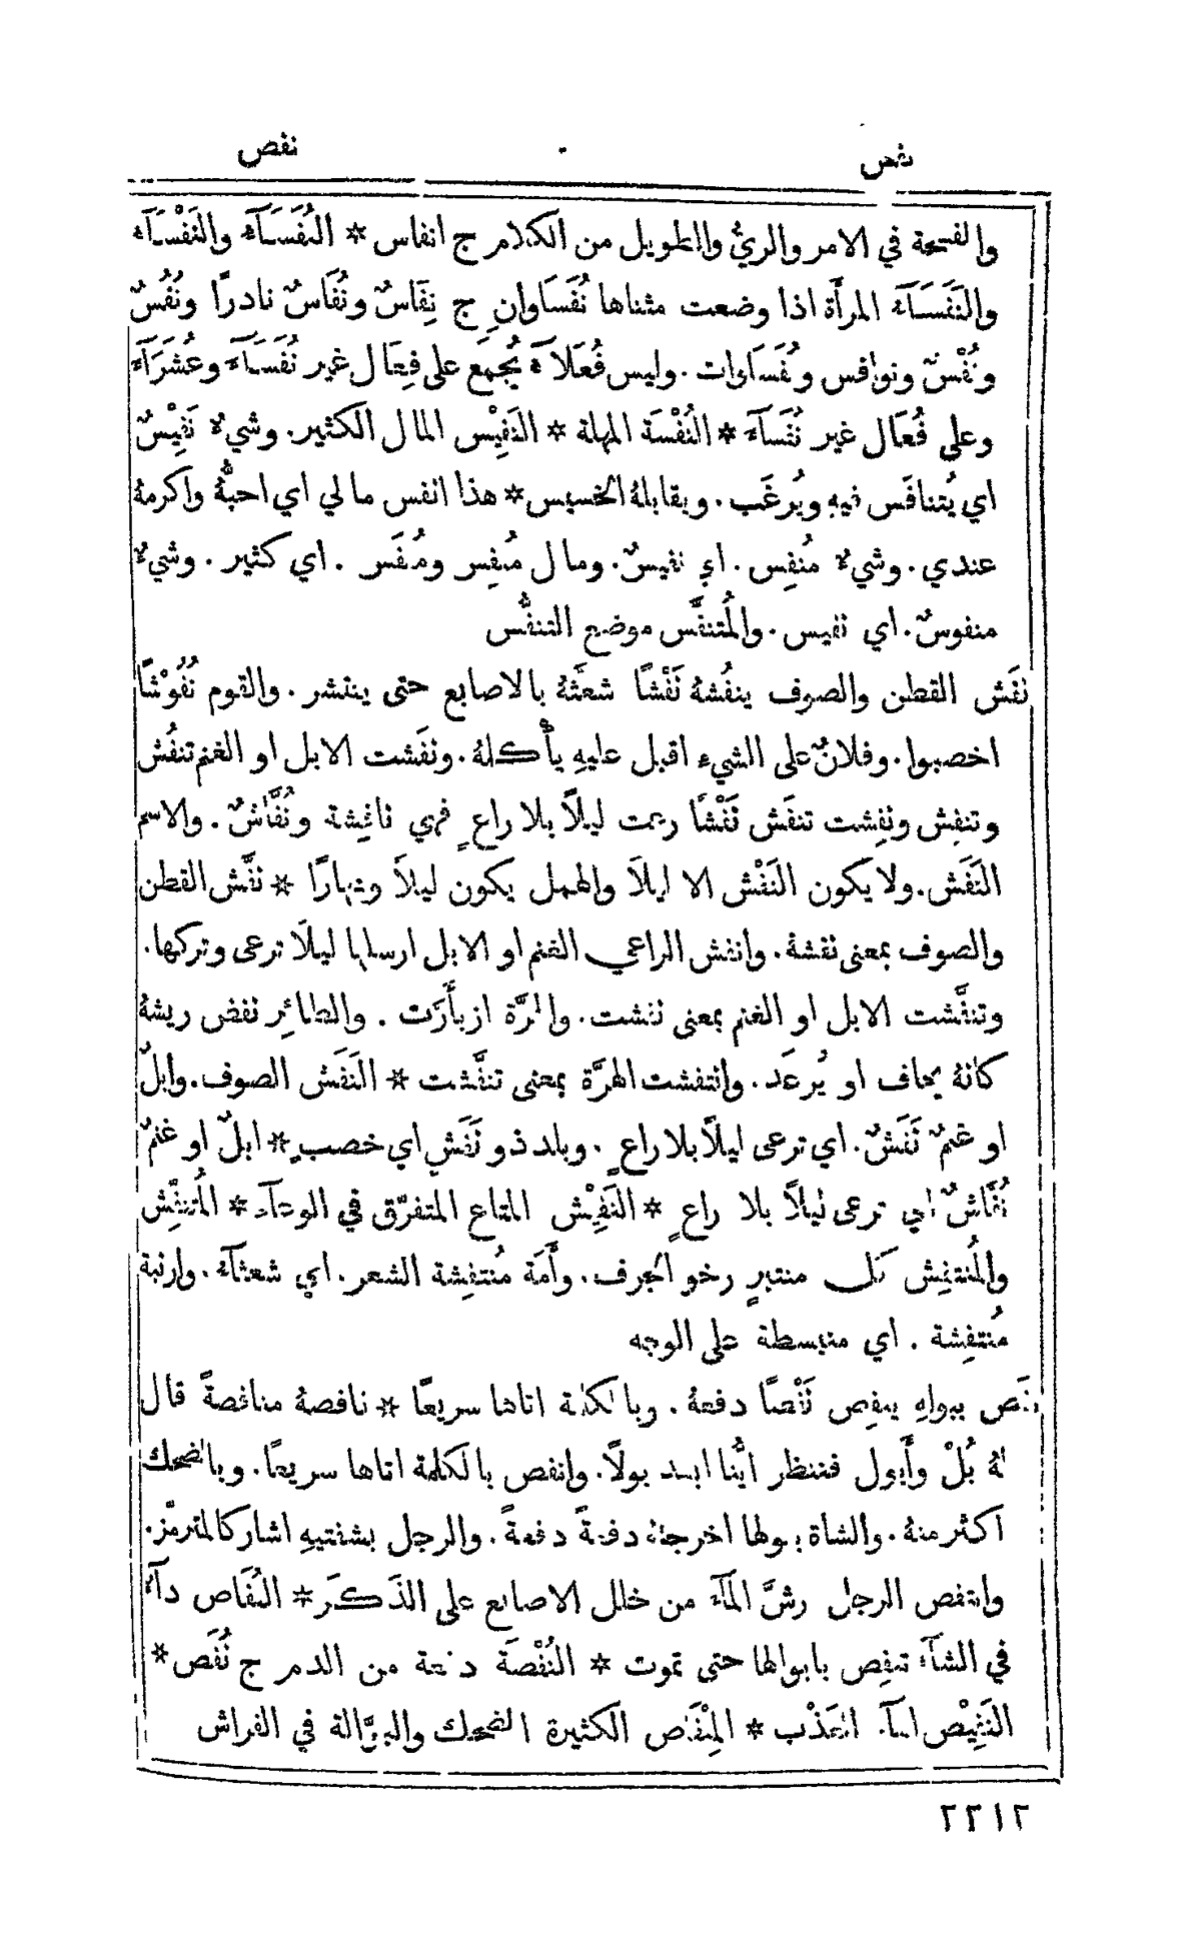 نفص
نفص
والفسحة في الامر والريُّ والطويل من الكلام ج انفاس * النُفَسَآءُ والنَفْسَآءُ
والنَفَسَآءُ المرأَة اذا وضعت مثناها نُفَسَاوان ج نِفَاسٌ ونُفَاسٌ نادرًا ونُفُسٌ
ونُفْسٌ ونوافس ونُفَسَاوات. وليس فُعَلَآءُ يُجمَع على فِعَال غير نُفَسَآءَ وعُشَرَآءَ
وعلى فُعَال غير نُفَسَآءَ * النُفْسَة المهلة * النَفِيْس المال الكثير. وشيءٌ نَفِيْسٌ
اي يُتنافَس فيهِ ويُرغَب. ويقابلهُ الخسيس * هذا انفس مالي اي احبُّهُ واكرمهُ
عندي. وشيءٌ مُنفِس. اي نفيسٌ. ومال مُنفِس ومُنفَس. اي كثير. وشيءٌ
منفوسٌ. اي نفيس. والمُتنفَّس موضع التنفُّس
نفَش القطن والصوف ينفُشهُ نَفْشًا شعثَّهُ بالاصابع حتى ينتشر. والقوم نُفُوْشًا
اخصبوا. وفلانٌ على الشيءِ اقبل عليهِ يأْكلهُ. ونفَشت الابل او الغنم تنفُش
وتنفِش ونفِشت تنفَش نَفْشًا رعت ليلًا بلا راعٍ فهي نافِشة ونُفَّاشٌ. والاسم
النَفَش. ولا يكون النَفَش الا ليلًا والهمل يكون ليلًا ونهارًا * نفَّش القطن
والصوف بمعنى نفشهُ. وانفش الراعي الغنم او الابل ارسلها ليلًا ترعى وتركها.
وتنفَّشت الابل او الغنم بمعنى نفشت. والهرَّة ازبأَرَّت. والطائِر نفض ريشهُ
كانهُ يخاف او يُرعَد. وانتفشت الهرَّة بمعنى تنفَّشت * النَفَش الصوف. وابلٌ
او غنمٌ نَفَشٌ. اي ترعى ليلًا بلا راعٍ. وبلد ذو نَفَشٍ اي خصبٍ * ابلٌ او غنمٌ
نُفَّاشٌ اي ترعى ليلًا بلا راعٍ * النَفِيْش المتاع المتفرّق في الوعآء * المُتنفِّش
والمُنتفِش كل منتبرٍ رخو الجوف. وأَمَة مُنتفِشة الشعر. اي شعثآء. وارنبة
مُنتفِشة. اي منبسطة على الوجه
نفَص ببولهِ ينفِص نَفْصًا دفعهُ. وبالكلمة اتاها سريعًا * نافصهُ منافصةً قال
لهُ بُلْ وأَبول فننظر ايُّنا ابعد بولًا. وانفص بالكلمة اتاها سريعًا. وبالضحك
اكثر منهُ. والشاة ببولها اخرجتهُ دفعةً دفعةً. والرجل بشفتيهِ اشار كالمترمّز.
وانتفص الرجل رشَّ المآءَ من خلل الاصابع على الذَكَر * النُفَاص دآءٌ
في الشآءِ تنفِص بابوالها حتى تموت * النُفْصَة دفعة من الدم ج نُفَص *
النَفِيْص المآء العَذْب * المِنْفَاص الكثيرة الضحك والبوَّالة في الفراش
٢٢١٢